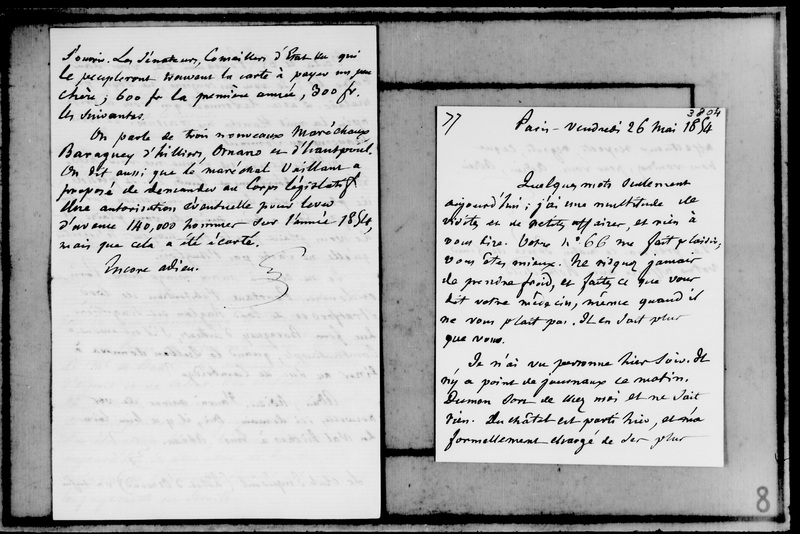 s'ouvrir. Les Sénateurs, Conseillers d'Etat &a qui
le peupleront trouvent la carte à payer un peu
chère ; 600 fr la première année, 300 fr.
les suivantes.
On parle de trois nouveaux Maréchaux
Baraguey d'hilliers, Ornano et d'hautpoul.
On dit aussi que le maréchal Vaillant a
proposé de demander au Corps législatif
une autorisation éventuelle pour lever
d'avance 140,000 hommes sur l'année 1854,
mais que cela a été écarté.
Encore adieu.
77
3804
Paris - Vendredi 26 Mai 1854
Quelques mots seulement
aujourd'hui ; j'ai une multitude de
visites et de petites affaires, et rien à
vous dire. Votre no. 66 me fait plaisir,
vous êtes mieux. Ne risquez jamais
de prendre froid, et faites ce que vous
dit votre médecin, même quand il
ne vous plait pas. Il en sait plus
que vous.
Je n'ai vu personne hier soir. Il
n'y a point de journaux ce matin.
Dumon sort de chez moi et ne sait
rien. Duchâtel est parti hier, et m'a
formellement chargé de ses plus
8